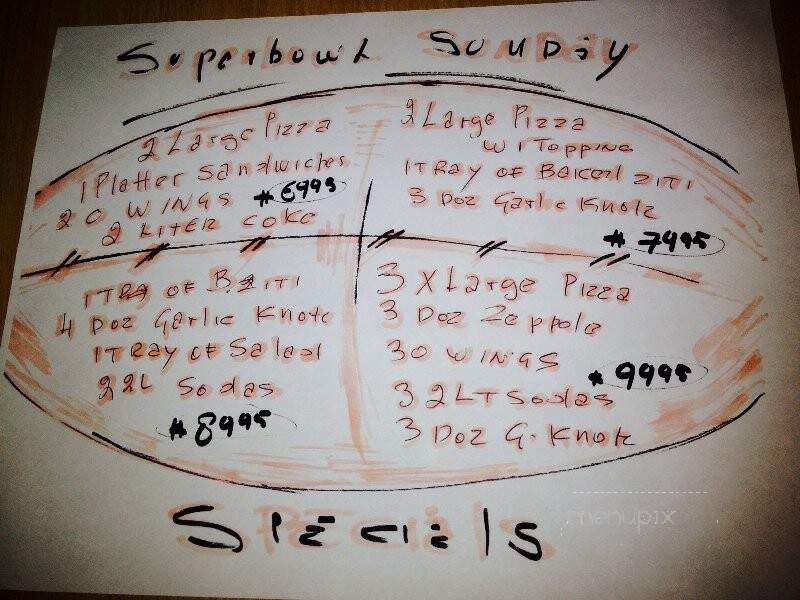 Superbowl Sunday
2 Large Pizza
1 Platter Sandwiches
20 WINGS #6995
2 LITER COKE
2 Large Pizza
W 1 Topping
1 TRAY OF BAKED ZITI
3 Doz Garlic Knotz
#7995
1 TRAY OF B. ZITI
4 Doz Garlic Knotz
1 TRAY OF Salad
2 2L Sodas
#8995
3 X Large Pizza
3 Doz Zeppole
30 WINGS
#9995
3 2 LT Sodas
3 Doz G. Knotz
Specials
menupix